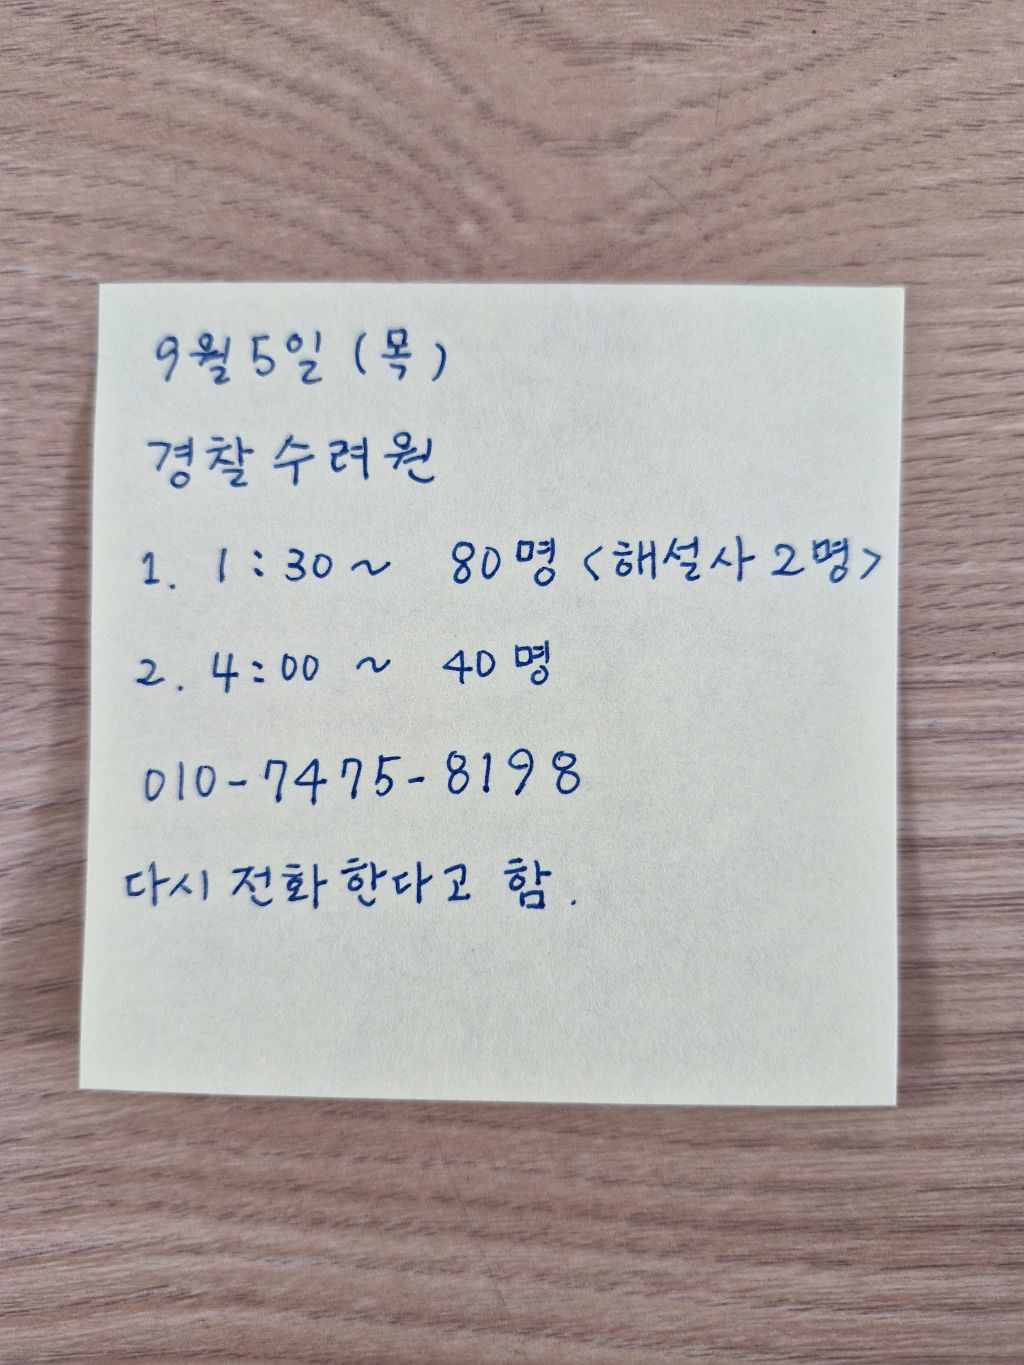 9월 5일 (목)
경찰 수려원
1. 1:30 ~ 80명 <해설사 2명>
2. 4:00 ~ 40명
010-7475-8198
다시 전화한다고 함.